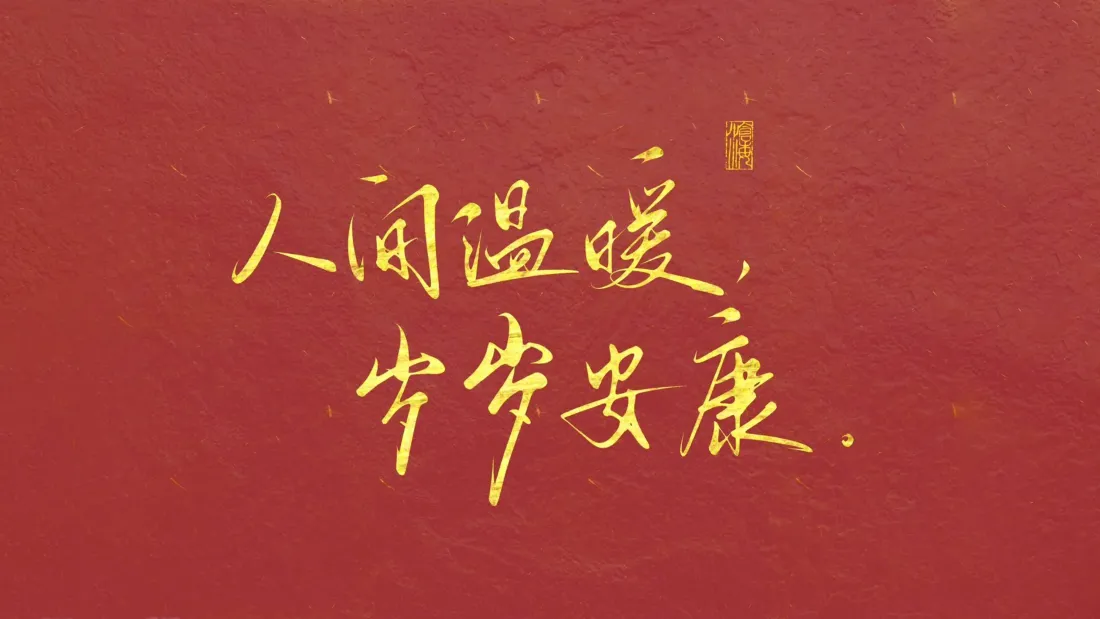 沧海
人间温暖,
岁岁安康.